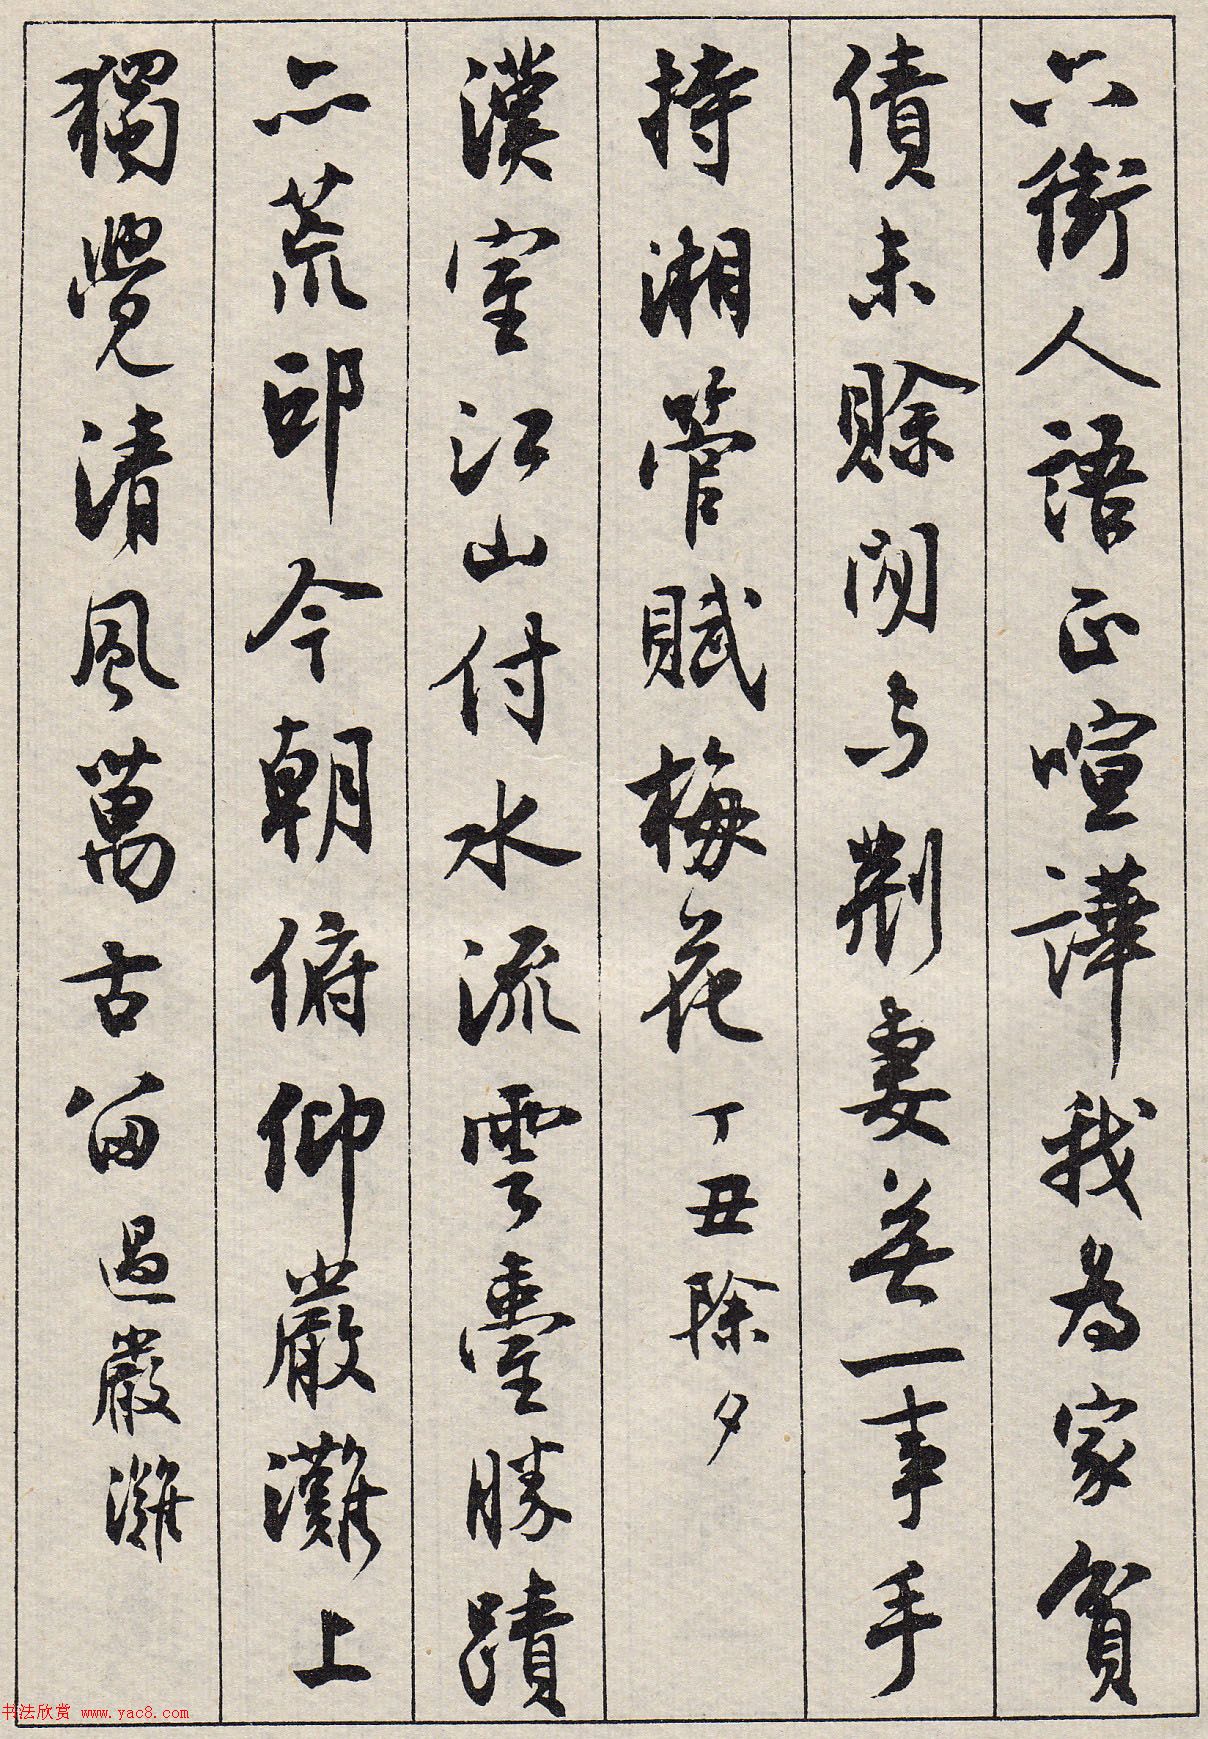 六街人語正喧譁我為家貧
債未賒閒与荆妻無一事手
持湘管賦梅花丁丑除夕
漢室江山付水流雲臺勝蹟
亦荒邱今朝俯仰嚴灘上
獨覺清風萬古留過嚴灘
书法欣赏 www.yac8.com